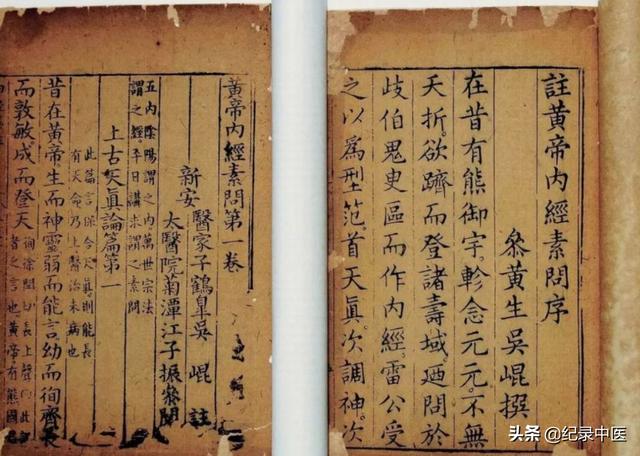 註黃帝内經素問序
叅黃生吳崐撰
在昔有熊御宇。軫念元元。不無
夭折。欲躋而登諸壽域。迺問於
歧伯鬼史區而作内經。雷公受
之以爲型范。首天真。次調神。次
黃帝内經素問第一卷
新安
醫家子鶴皐吳 崐 註
太醫院菊潭江子振叅閱
五内陰陽謂之内萬世宗法
謂之經平日講求謂之素問
上古天真論篇第一
此篇言保合天真則能長
有天命乃上醫治未病也
昔在黃帝。生而神靈。弱而能言。幼而徇齊。長
而敦敏。成而登天
徇徐閏切長上聲
者之言也。黃帝。有熊國
头条 @纪录中医